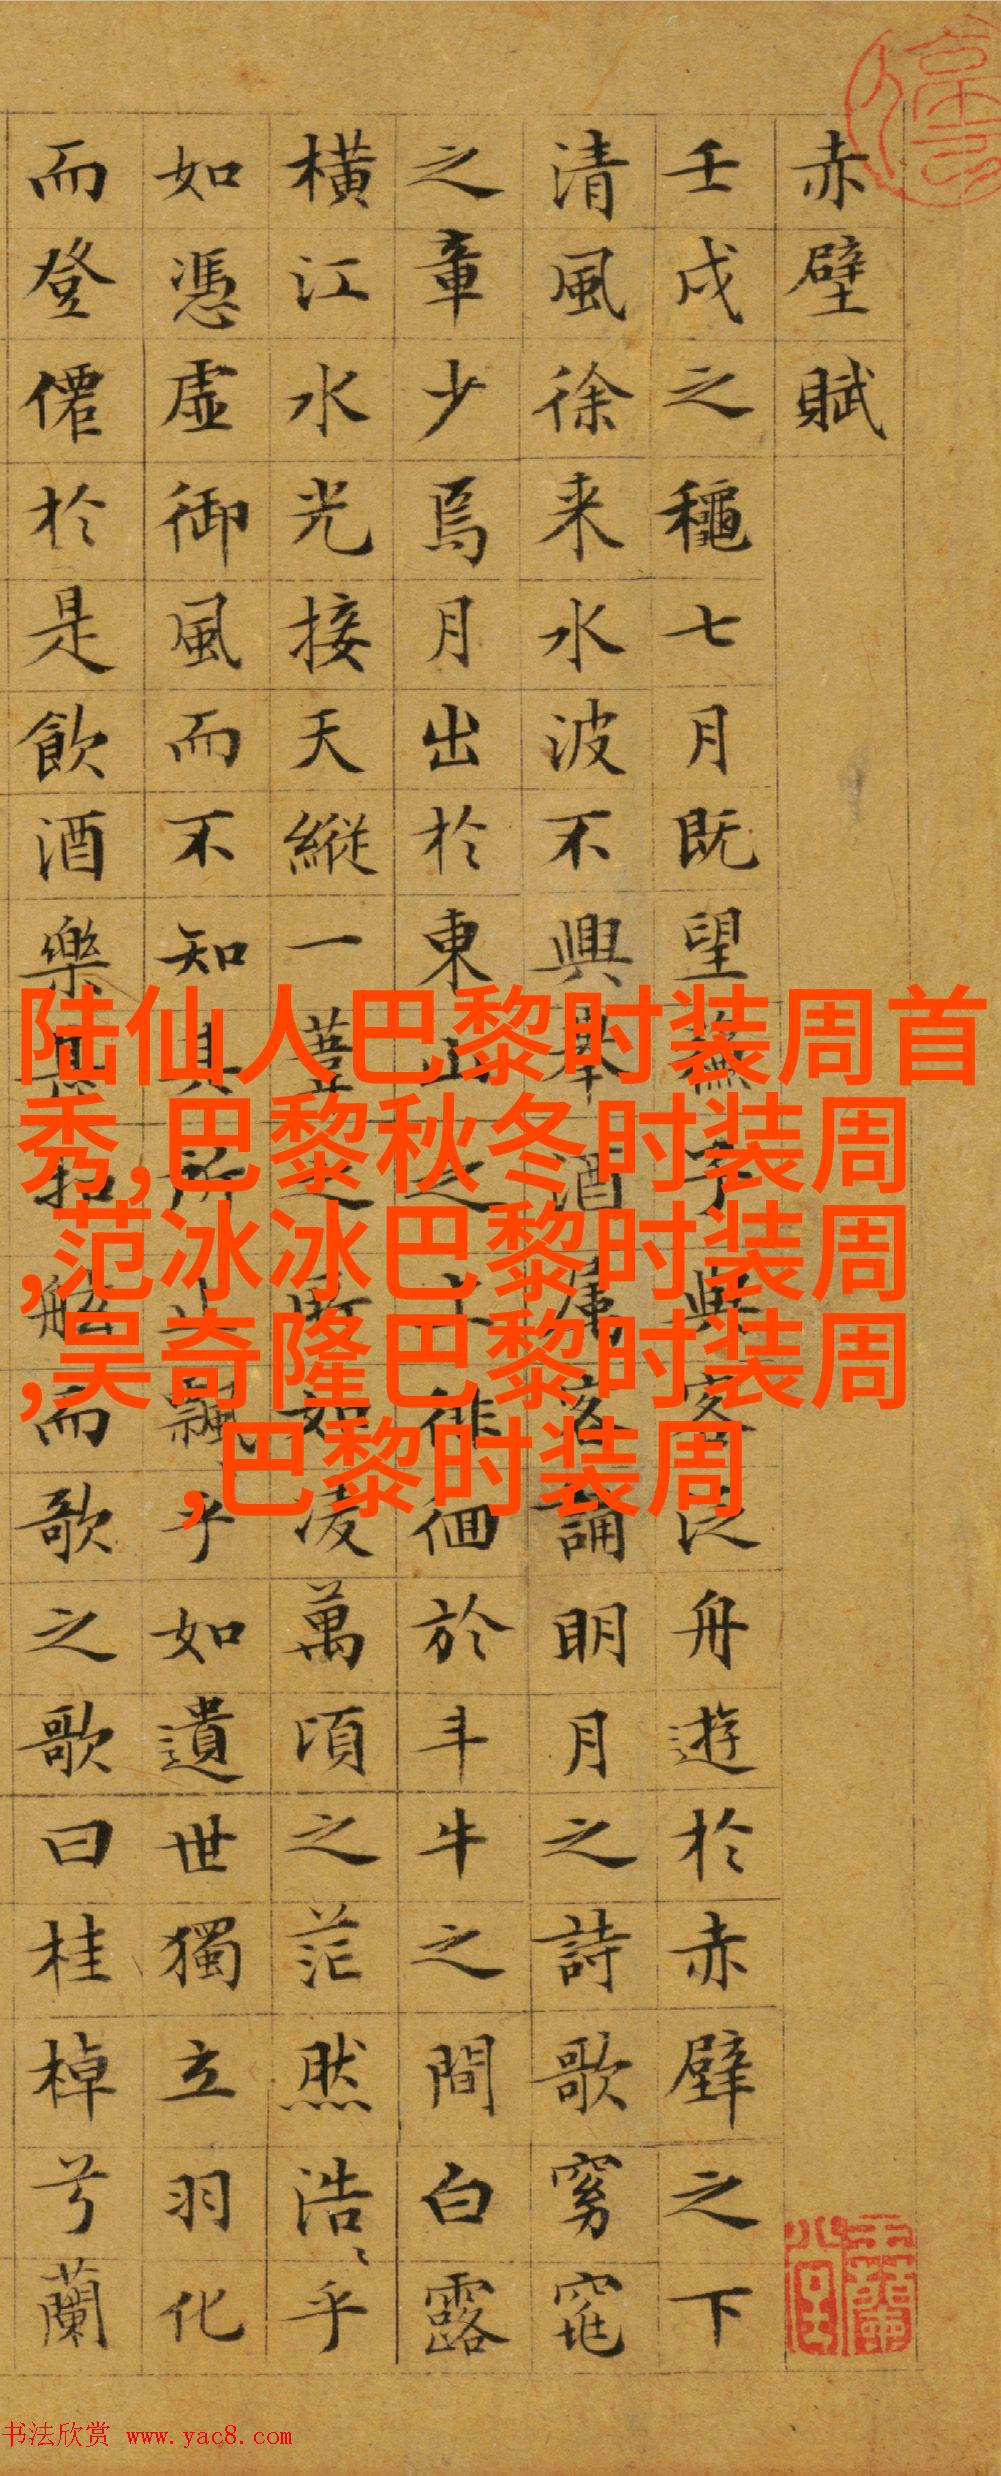 赤壁賦
壬戌之穐七月既望蘇子與客泛舟遊於赤壁之下
清風徐来水波不興舉酒属客誦明月之詩歌窈窕
之章少焉月出於東山之上徘徊於斗牛之間白露
横江水光接天縱一葦之所如凌萬頃之茫然浩〻乎
如憑虚御風而不知其所止飄乎如遺世獨立羽化
而登僊於是飲酒樂甚扣舷而歌之歌曰桂棹兮蘭
陆仙人巴黎时装周首
秀,巴黎秋冬时装周
,范冰冰巴黎时装周
,吴奇隆巴黎时装周
,巴黎时装周
书法欣赏 www.yac8.com